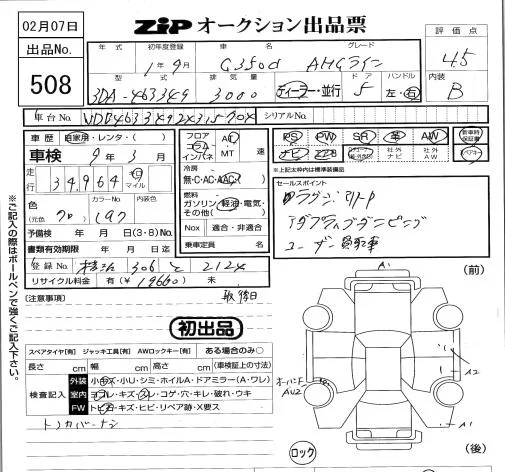 02月07日
ZiP オークション出品票
出品No.
508
年式 初年度登録 車名 グレード
1年9月 G350d AMGライン
型式 排気量 ドア ハンドル
3DA-463349 3000 ディーラー・並行 5 左・右
評価点
4.5
内装
B
車台No. シリアルNo.
車歴 自家用・レンタ・( )
車検 9年3月
走行 34,964 キロ マイル
色 (元色) カラーNo. 内装色
クロ 197
予備検 年 月 日(3・8)No.
書類有効期限 年 月 日迄
登録No. 306 と 212X
リサイクル料金 有(¥19660) 未
フロア コラム インパネ AT MT 速
冷房 無・C・AC・AAC・
燃料 ガソリン・軽油・電気・その他( )
Nox 適合・非適合
乗車定員 名
PS PW SR 革 AW 新車時保証書
ナビ エアB 社外ナビ 社外AW スペアキー
※上記太枠内は標準装備品
セールスポイント
ユーザー買取車
(注意事項)
初出品
スペアタイヤ[有] ジャッキ工具[有] AWロックキー[有] ある場合のみ○
長さ cm 幅 cm 高さ cm (車検証上の寸法)
検査記入
外装 小キズ・小U・シミ・ホイルA・ドアミラー(A・ワレ)
室内 ヨゴレ・キズ・スレ・コゲ・穴・キレ・破れ・ウキ
FW トビ石・キズ・ヒビ・リペア跡・X要ス
トノカバーナシ
※ご記入の際はボールペンで強くご記入下さい。
(前)
A1
A2
A1
ロック
(後)